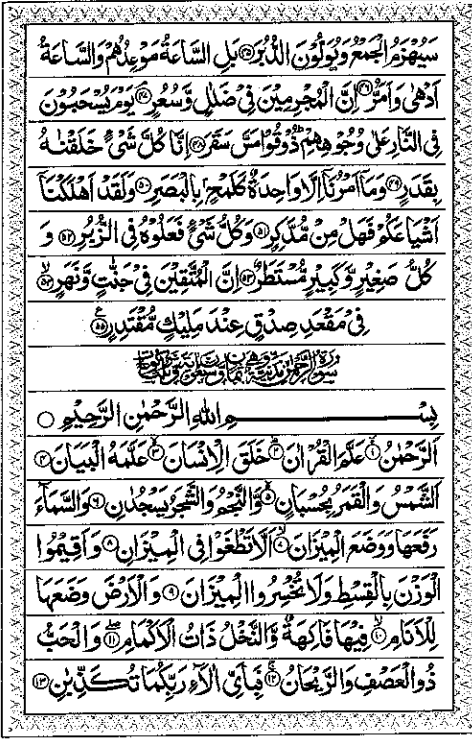 سَيُهْزَمُ الْجَمْعُ وَيُوَلُّوْنَ الدُّبُرَ ﴿۴۵﴾ بَلِ السَّاعَةُ مَوْعِدُهُمْ وَالسَّاعَةُ
اَدْهٰى وَاَمَرُّ ﴿۴۶﴾ اِنَّ الْمُجْرِمِيْنَ فِيْ ضَلٰلٍ وَّسُعُرٍ ﴿۴۷﴾ يَوْمَ يُسْحَبُوْنَ
فِى النَّارِ عَلٰى وُجُوْهِهِمْ ذُوْقُوْا مَسَّ سَقَرَ ﴿۴۸﴾ اِنَّا كُلَّ شَيْءٍ خَلَقْنٰهُ
بِقَدَرٍ ﴿۴۹﴾ وَمَا اَمْرُنَا اِلَّا وَاحِدَةٌ كَلَمْحٍ بِالْبَصَرِ ﴿۵۰﴾ وَلَقَدْ اَهْلَكْنَا
اَشْيَاعَكُمْ فَهَلْ مِنْ مُّدَّكِرٍ ﴿۵۱﴾ وَكُلُّ شَيْءٍ فَعَلُوْهُ فِى الزُّبُرِ ﴿۵۲﴾ وَ
كُلُّ صَغِيْرٍ وَّكَبِيْرٍ مُّسْتَطَرٌ ﴿۵۳﴾ اِنَّ الْمُتَّقِيْنَ فِيْ جَنّٰتٍ وَّنَهَرٍ ﴿۵۴﴾
فِيْ مَقْعَدِ صِدْقٍ عِنْدَ مَلِيْكٍ مُّقْتَدِرٍ ﴿۵۵﴾
بِسْمِ اللهِ الرَّحْمٰنِ الرَّحِيْمِ ○
اَلرَّحْمٰنُ ﴿۱﴾ عَلَّمَ الْقُرْاٰنَ ﴿۲﴾ خَلَقَ الْاِنْسَانَ ﴿۳﴾ عَلَّمَهُ الْبَيَانَ ﴿۴﴾
اَلشَّمْسُ وَالْقَمَرُ بِحُسْبَانٍ ﴿۵﴾ وَّالنَّجْمُ وَالشَّجَرُ يَسْجُدٰنِ ﴿۶﴾ وَالسَّمَاءَ
رَفَعَهَا وَوَضَعَ الْمِيْزَانَ ﴿۷﴾ اَلَّا تَطْغَوْا فِى الْمِيْزَانِ ﴿۸﴾ وَاَقِيْمُوا
الْوَزْنَ بِالْقِسْطِ وَلَا تُخْسِرُوا الْمِيْزَانَ ﴿۹﴾ وَالْاَرْضَ وَضَعَهَا
لِلْاَنَامِ ﴿۱۰﴾ فِيْهَا فَاكِهَةٌ وَّالنَّخْلُ ذَاتُ الْاَكْمَامِ ﴿۱۱﴾ وَالْحَبُّ
ذُو الْعَصْفِ وَالرَّيْحَانُ ﴿۱۲﴾ فَبِاَيِّ اٰلَاءِ رَبِّكُمَا تُكَذِّبٰنِ ﴿۱۳﴾